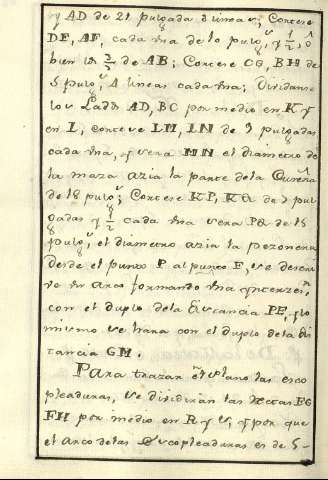 y AD de 21 pulgada 8 lineas; Cortese
DE, AF, cada una de 10 pulg.ˢ, y 1/2, ô
bien de AB; Cortese CG, BH de
5 pulg.ˢ, 4 lineas cada una; Dividanse
los Lad.ˢ AD, BC por medio en K y
en L; corteve LM, LN de 9 pulgadas
cada una, y vera MN el diametro de
la maza azia la parte dela Cureña
de 18 pulg.ˢ; Cortese KP, KQ de 7 pul
gadas y 1/2 cada una vera PQ de 15
pulg.ˢ, el diametro azia la pezonera
Desde el punto P al punto F, ve descri
ve un arco formando una ynterze.ⁿ,
con el duplo dela distancia PE, y lo
mismo ve hara con el duplo dela Dis
tancia GM.
Para trazar el plano las esco
pleaduras, ve dividirán las rectas EG
FH por medio en R y V, y por que
el arco delas Escopleaduras es de 5-